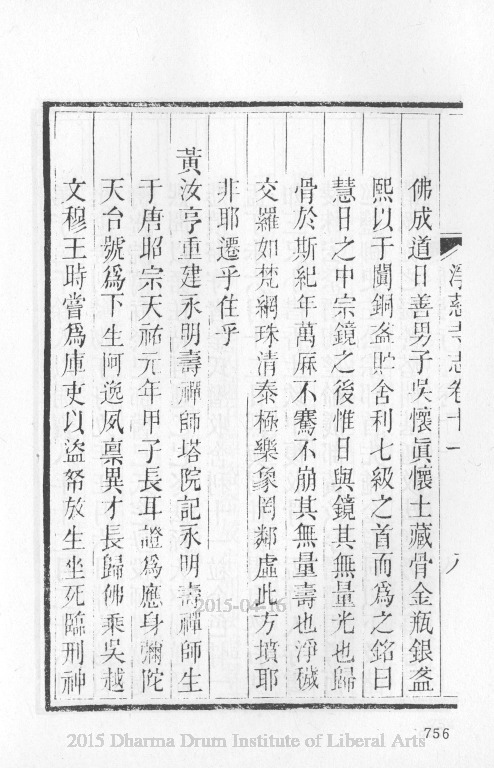 淨慈寺志卷十一
八
佛成道日善男子吳懷眞懷土藏骨金瓶銀盌
熙以于闐銅盌貯舍利七級之首而爲之銘曰
慧日之中宗鏡之後惟日與鏡其無量光也歸
骨於斯紀年萬厤不騫不崩其無量壽也淨穢
交羅如梵網珠清泰極樂象罔鄰虛此方墳耶
非耶遷乎住乎
黃汝亨重建永明壽禪師塔院記永明壽禪師生
于唐昭宗天祐元年甲子長耳證爲應身彌陀
天台號爲下生阿逸夙稟異才長歸佛乘吳越
文穆王時嘗爲庫吏以盜帑放生坐死臨刑神
2015-04-16
756
2015 Dharma Drum Institute of Liberal Arts